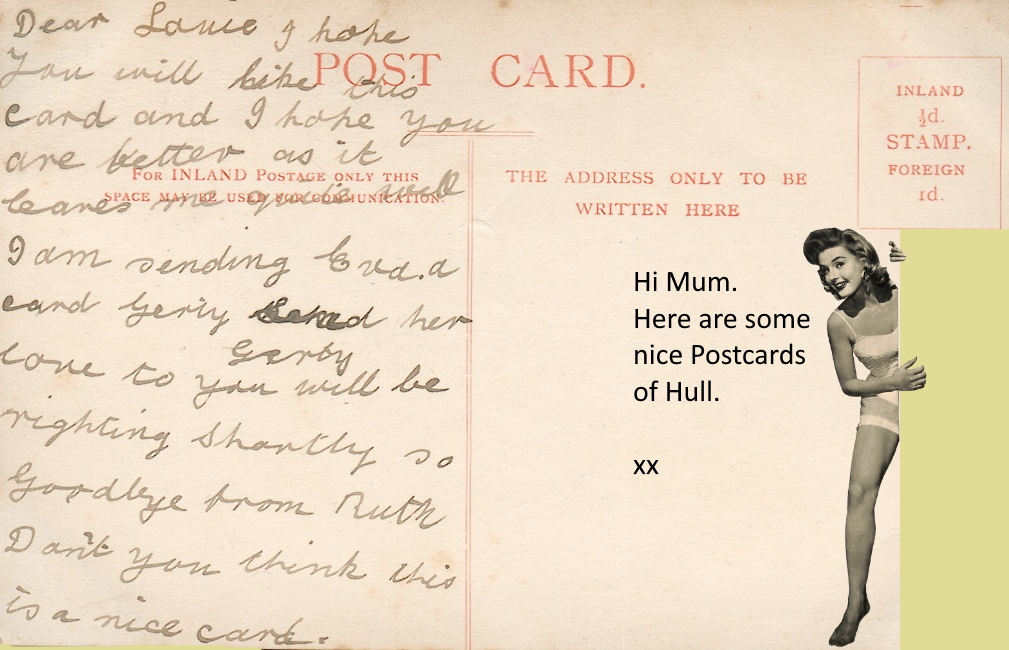 Dear Louie I hope
You will like this
card and I hope you
are better as it
leaves me quite well
I am sending Eva.a
card Gerty send her
Gerty
love to you will be
righting shortly so
Goodbye from Ruth
Don't you think this
is a nice card.
POST CARD.
FOR INLAND POSTAGE ONLY THIS
SPACE MAY BE USED FOR COMMUNICATION.
THE ADDRESS ONLY TO BE
WRITTEN HERE
INLAND
½d.
STAMP.
FOREIGN
1d.
Hi Mum.
Here are some
nice Postcards
of Hull.
xx